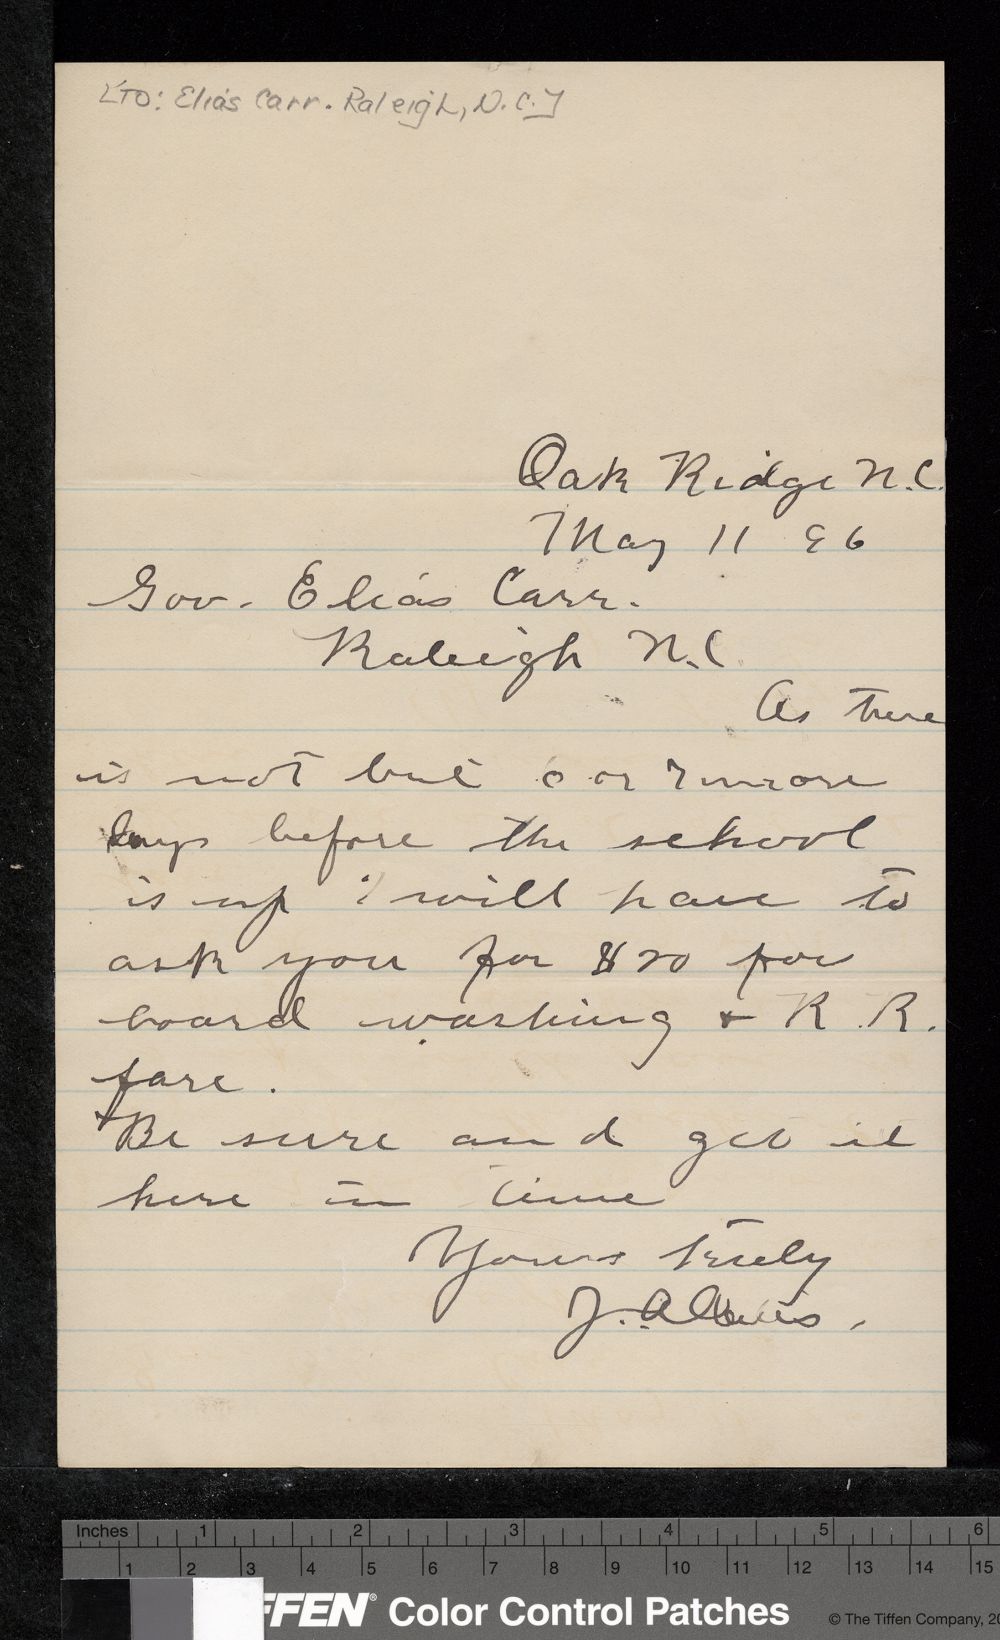 [TO: Elias Carr. Raleigh, N.C.]
Oak Ridge N.C.
May 11 96
Gov. Elias Carr.
Raleigh N.C
As there
is not but or 7 more
days before the school
is up i will have to
ask you for $20 for
board washing + R. R.
fare.
+ Be sure and get it
here in time
Yours truly
J. A.
Inches 1 2 3 4 5 6
1 2 3 4 5 6 7 8 9 10 11 12 13 14 15
FFEN® Color Control Patches © The Tiffen Company, 20